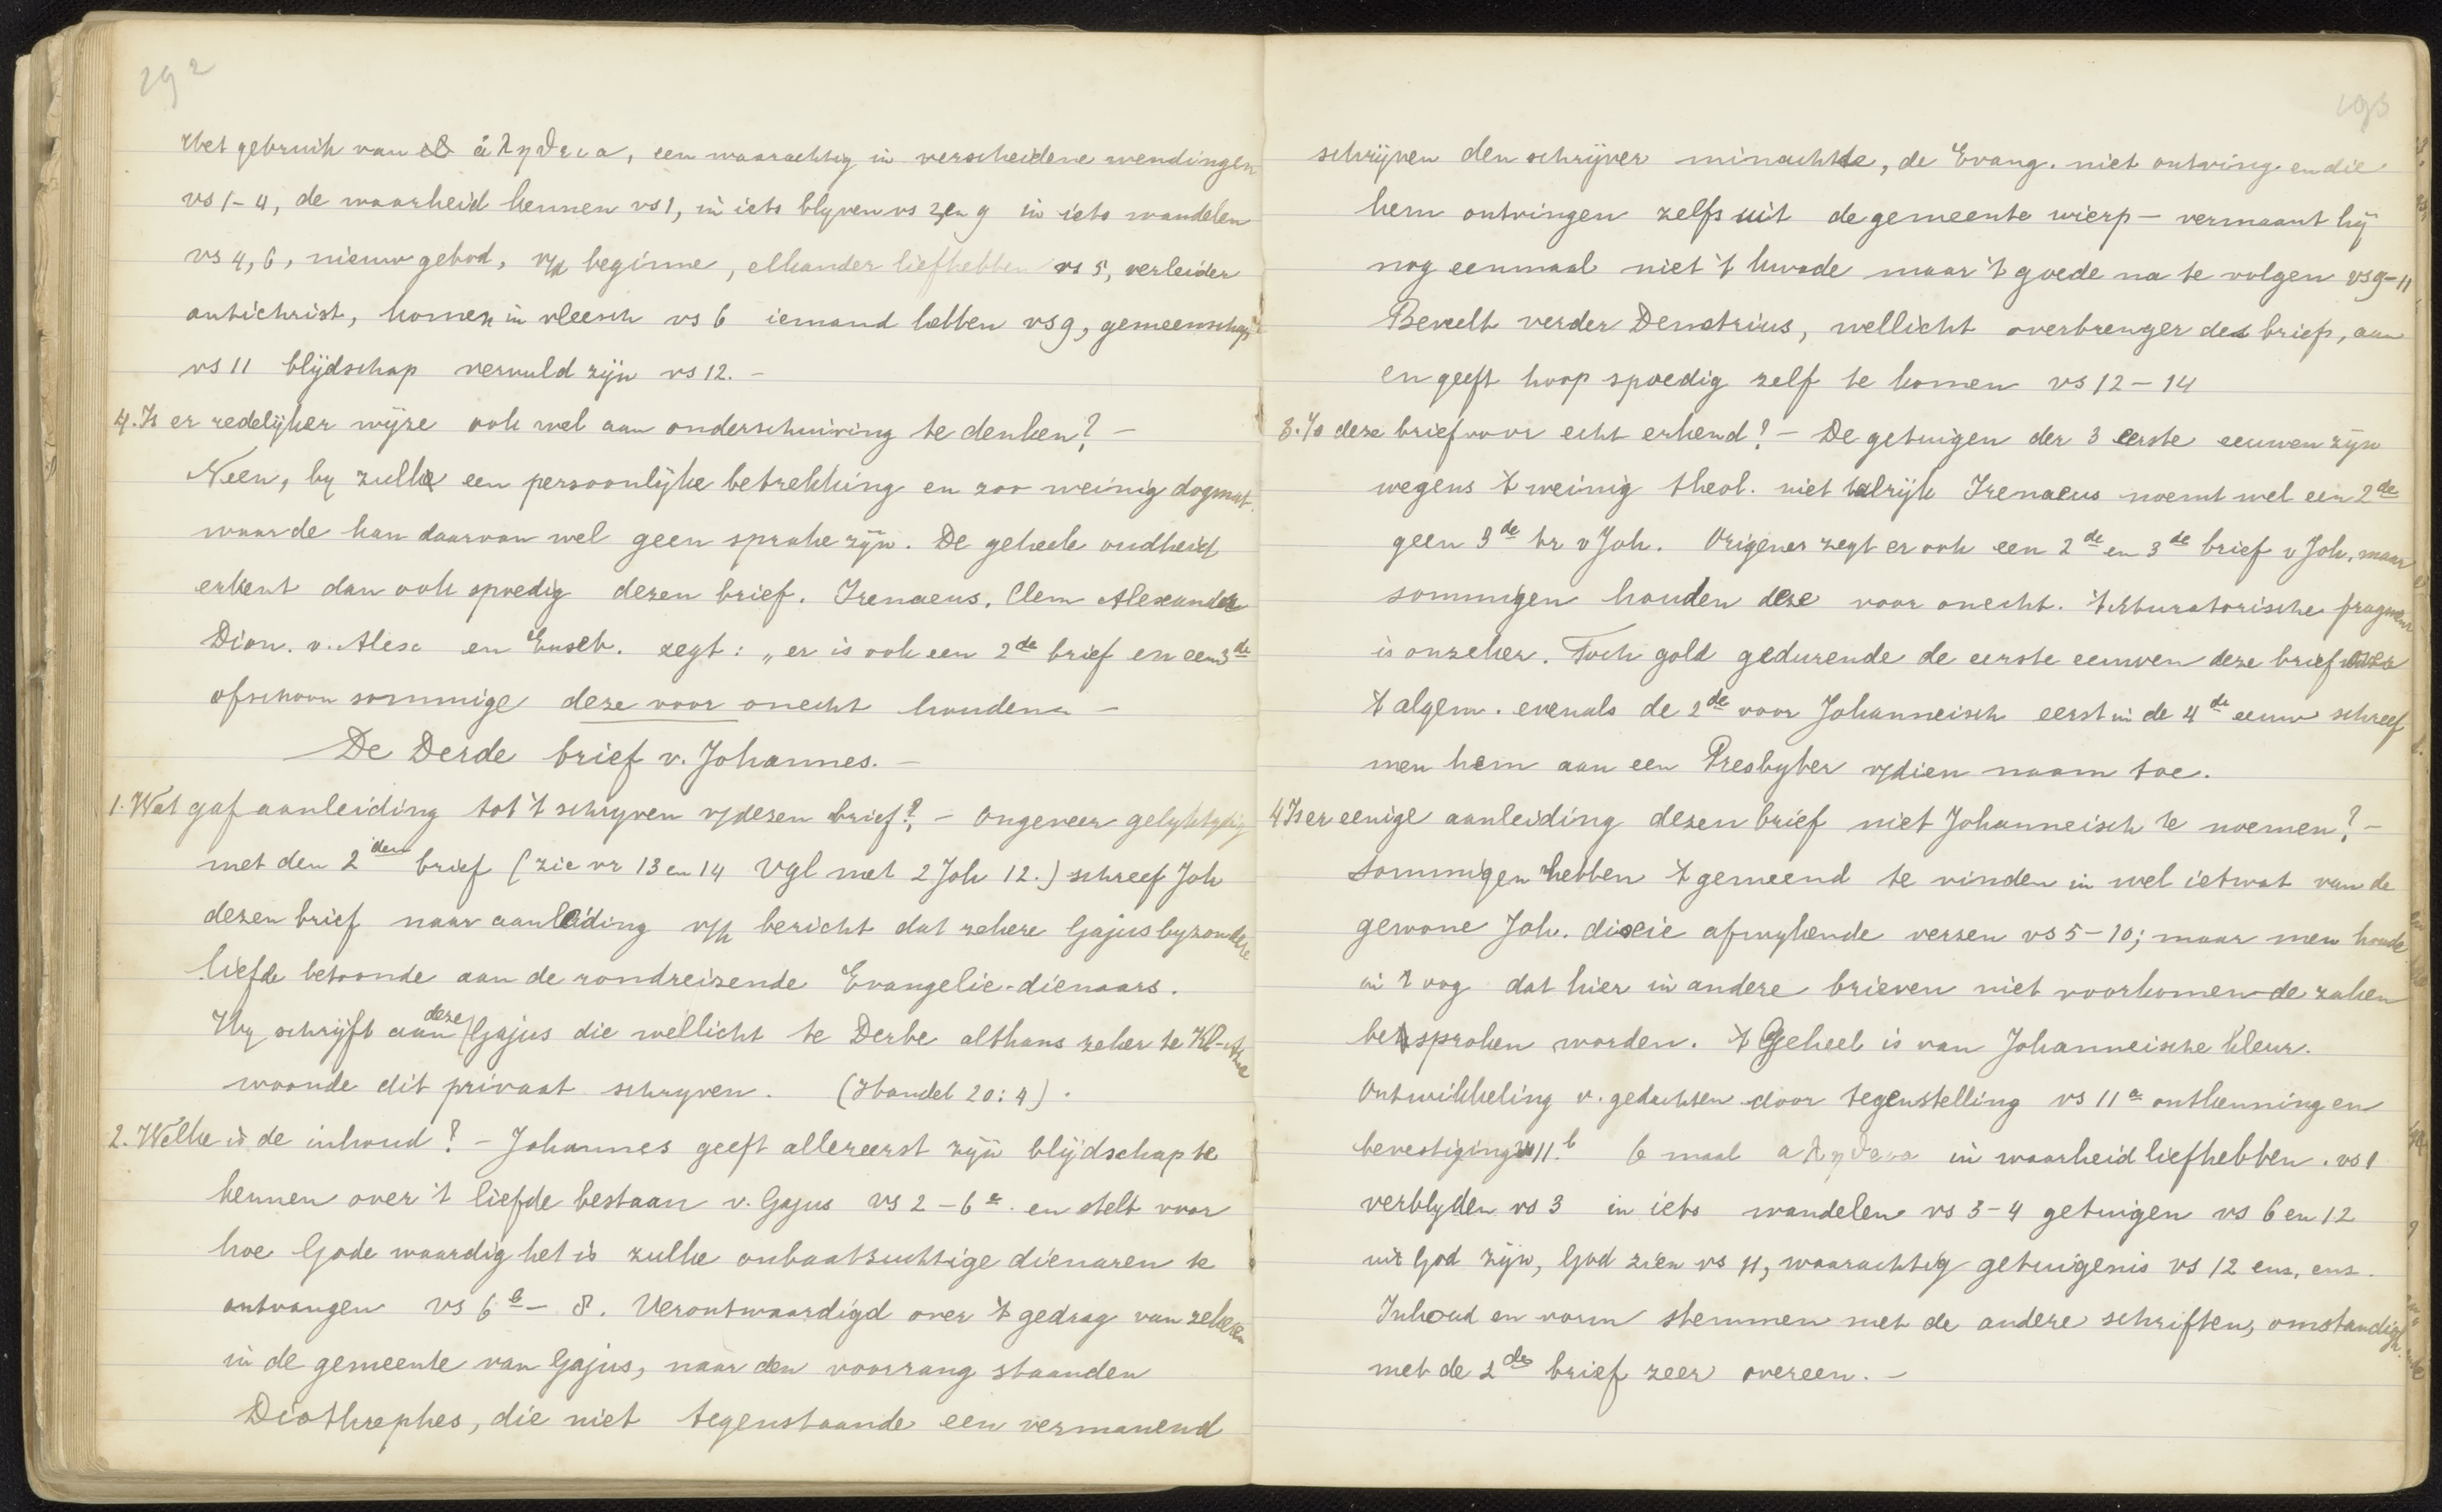 292
Het gebruik van ἀληθεια, een waarachtig in verscheidene wendingen
vs 1-4, de waarheid kennen vs 1, in iets blyven vs 2 en 9 in iets wandelen
vs 4, 6, nieuw gebod, v/d beginne, elkander liefhebben vs 5, verleider
antichrist, komen in vleesch vs 6 iemand hebben vs 9, gemeenschap
vs 11 blÿdschap vervuld zÿn vs 12. -
4. Is er redelÿker wÿze ook wel aan onderschuiving te denken? -
Neen, by zulke een persoonlÿke betrekking en zoo weinig dogmat.
waarde kan daarvan wel geen sprake zÿn. De geheele oudheid
erkent dan ook spoedig dezen brief. Irenaeus, Clem Alexander
Dion. v. Alex en Euseb. zegt: „er is ook een 2de brief en een 3de
ofschoon sommige deze voor onecht houden -
De Derde brief v. Johannes. -
1. Wat gaf aanleiding tot 't schryven v/dezen brief? - Ongeveer gelyktydig
met den 2den brief (zie vr 13 en 14 Vgl met 2 Joh 12.) schreef Joh
dezen brief naar aanleiding v/h bericht dat zekere Gajus byzondere
liefde betoonde aan de rondreizende Evangelie-dienaars.
Hy schrÿft aan deze Gajus die wellicht te Derbe althans zeker te Kl-Azie
woonde dit privaat schryven. (Handel 20:4).
2. Welke is de inhoud? - Johannes geeft allereerst zÿn blÿdschap te
kennen over 't liefde bestaan v. Gajus vs 2-6a. en stelt voor
hoe Gode waardig het is zulke onbaatzuchtige dienaren te
ontvangen vs 6b - 8. Verontwaardigd over 't gedrag van zekeren
in de gemeente van Gajus, naar den voorrang staanden
Diothrephes, die niet tegenstaande een vermanend
293
schrÿven den schrÿver minachtte, de Evang. niet ontving en die
hem ontvingen zelfs uit de gemeente wierp - vermaant hÿ
nog eenmaal niet 't kwade maar 't goede na te volgen vs 9-11
Beveelt verder Demetrius, wellicht overbrenger des briefs, aan
en geeft hoop spoedig zelf te komen vs 12-14
3. Is deze brief voor echt erkend? - De getuigen der 3 eerste eeuwen zÿn
wegens 't weinig theol. niet talrÿk Irenaeus noemt wel een 2de
geen 3de br v Joh. Origenes zegt er ook een 2de en 3de brief v Joh, maar
sommigen houden deze voor onecht. 't fragment
is onzeker. Toch gold gedurende de eerste eeuwen deze brief
't algem. evenals de 2de voor Johanneisch eerst in de 4de eeuw schreef
men hem aan een Presbyter v/dien naam toe.
4 Is er eenige aanleiding dezen brief niet Johanneisch te noemen? -
Sommigen hebben 't gemeend te vinden in wel ietwat van de
gewone Joh. dixie afwykende verzen vs 5-10; maar men houde
in 't oog dat hier in andere brieven niet voorkomen-de zaken
besproken worden. 't Geheel is van Johanneische kleur.
Ontwikkeling v. gedachten door tegenstelling vs 11a ontkenning en
bevestiging vs 11.b 6 maal αληθεια in waarheid liefhebben. vs 1
verblyden vs 3 in iets wandelen vs 3-4 getuigen vs 6 en 12
uit God zÿn, God zien vs 11, waarachtig getuigenis vs 12 enz. enz.
Inhoud en vorm stemmen met de andere schriften, omstandigh.
met de 2de brief zeer overeen. -